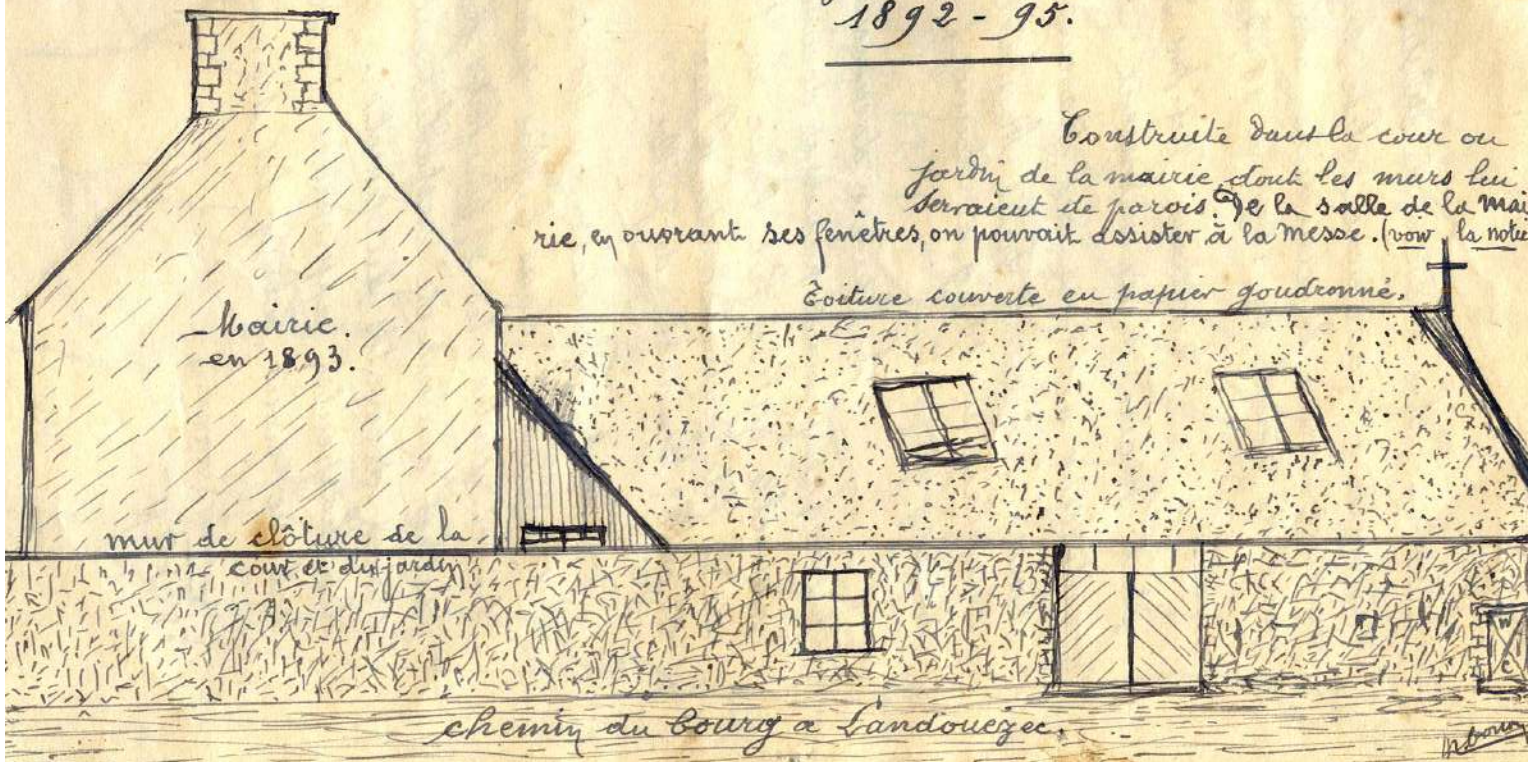 1892 - 95.
Construite dans la cour ou
jardin de la mairie, dont les murs lui
servaient de parois. De la salle de la mai
rie, en ouvrant ses fenêtres, on pouvait assister à la messe. (voir la notice
Toiture couverte en papier goudronné.
Mairie.
en 1893.
mur de clôture de la
cour et du jardin
W
C
chemin du bourg a Landouezec.